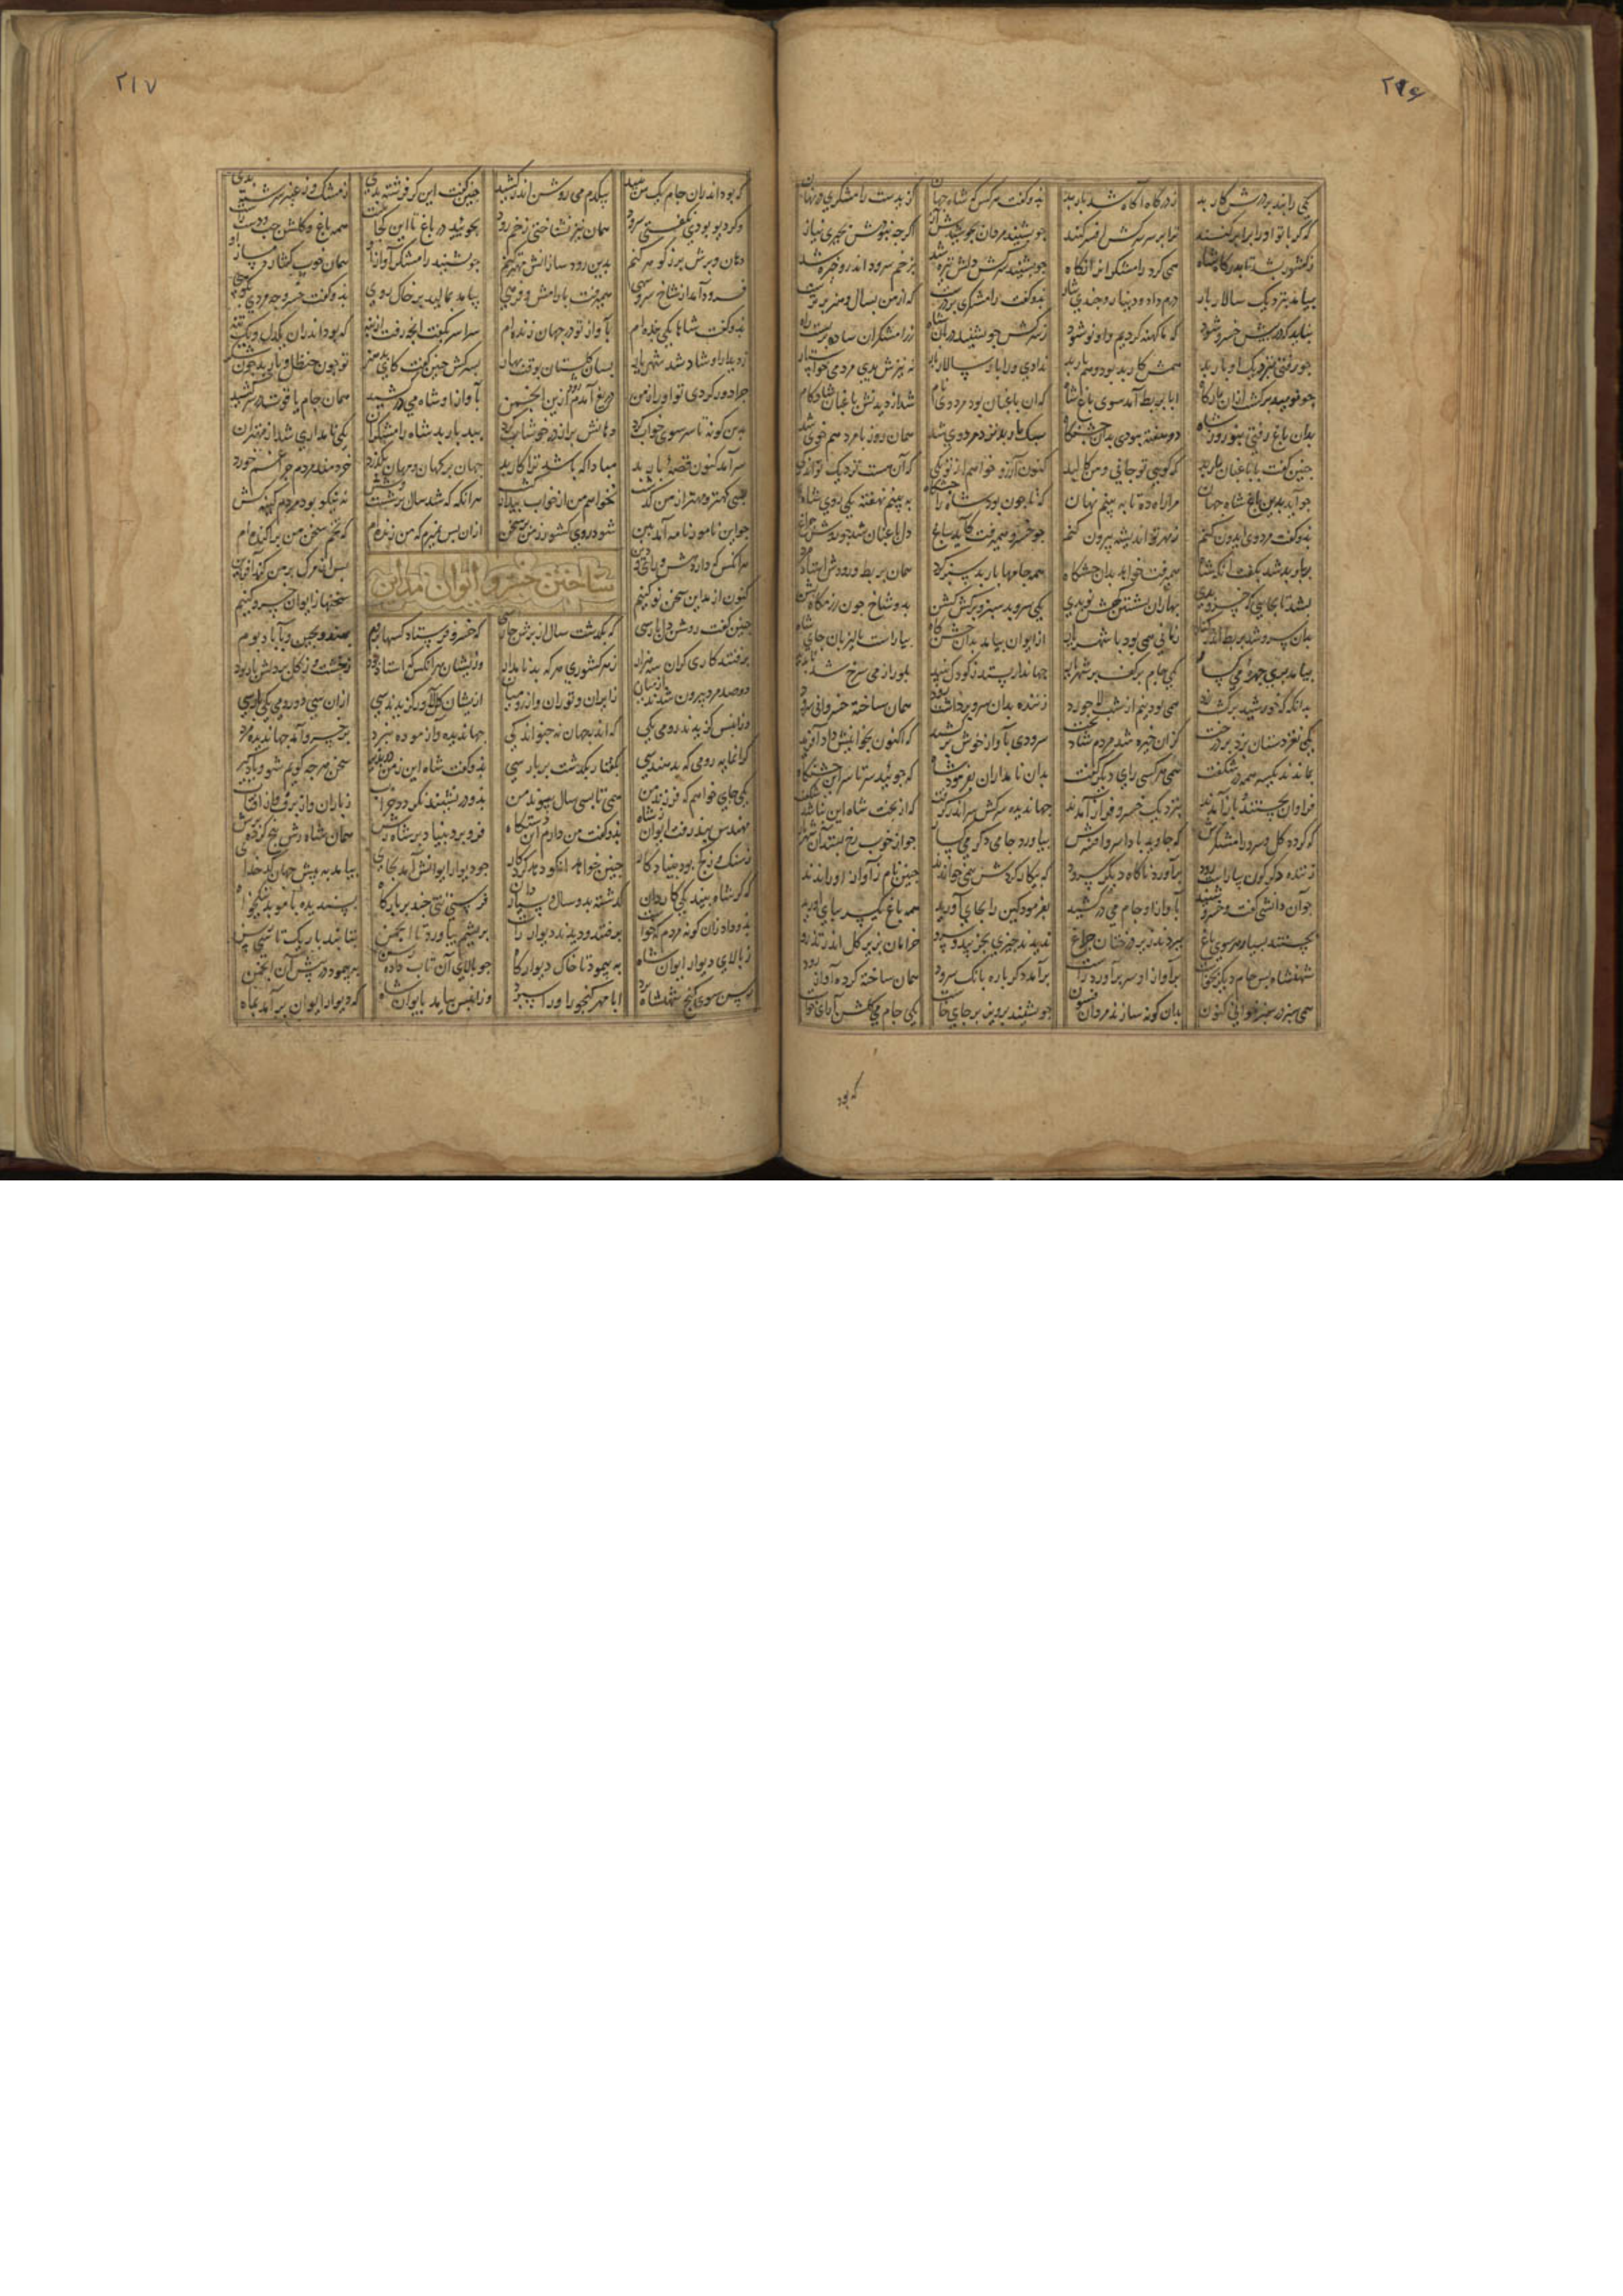 ۲۹۶
یکی رابند بر درش کار بد زدرکاه آکاه شد باربد بدو کفت هر کس که شاه جهان کزیدست رامشکری در نهان
که کر با تو او را برابر کنند ترا بر سر سرکش افسر کنند جو بشنید مردان بجوشید آز اکرجه نبودش بجیزی نیاز
زکشور بشد تا بدرکاه شاه همی کرد رامشکرانرا نکاه جو بشنید سرکش دلش تیره شد بزخم سرود اندرو خیره شد
بیامد بنزدیک سالار بار درم داد و دینار و جندی نثار بدو کفت رامشکری بر درست که از من بسال و هنر برترست
نباید که در پیش خسرو شود که ما کهنه کردیم و او نو شود زسرکش جو بشنید دربان شاه زرامشکران ساده بربست راه
جو رفتی بنزدیک او باربد همش کار بد بود و هم بار بد ندادی ورا بار سالار بار نه نیزش بدی مردمی خواستار
جو نومید برکشت ازان بارکاه ابا بربط آمد سوی باغ شاه کجا باغبان بود مردوی نام شد از دیدنش باغبان شادکام
بدان باغ رفتی بنوروز شاه دو هفته ببودی بدان جشنکاه سبک باربد نزد مردوی شد همان روز با مرد هم خوی شد
جنین کفت با باغبان باربد که کویی تو جانی و من کالبد کنون آرزو خواهم از تو یکی که آن هست نزدیک تو اندکی
جو آید بدین باغ شاه جهان مرا راه ده تا به بینم نهان که تا جون بود شاه را جشنکاه به بینم نهفته یکی روی شاه
بدو کفت مردوی ایدون کنم زمهر تو اندیشه بیرون کنم جو خسرو همیرفت کاید بباغ دل باغبان شد جو روشن جراغ
بر باربد شد بکفت انکه شاه همیرفت خواهد بدان جشنکاه همه جامها باربد سبز کرد همان بربط و رود
بشد تا بجایی که خسرو بدی بهاران نشستن کهش نو بدی یکی سرو بد سبز و برکش کشن بدو شاخ جون رزمکاه بشن
بدان سرو شد بربط اندر کنار زمانی همی بود تا شهریار از ایوان بیامد بدان جشنکاه بیاراست پالیزبان جای شاه
بیامد پری جهره می کسار یکی جام بر کف بر شهریار جهاندار بستد زکودک نبید بلور از می سرخ شد ناپدید
بدانکه که خورشید برکشت زرد همی بود تا نیم از شب جورد زننده بدان سرو برداشت رود همان ساخته خسروانی سرود
یکی نغز دستان بزد بر درخت کزان خیره شد مردم شاد بخت سرودی بآواز خوش برکشید که اکنون تو خوانیش داد آفرید
بماندند یکسر همه در شکفت همی هر کسی رای دیکر کرفت بدان نامداران بفرمود شاه که جویند سر تا سر این جشنکاه
فراوان بجستند و باز آمدند بنزدیک خسرو فراز آمدند جهاندیده سرکش سراندر کرفت که از بخت شاه این نباشد شکفت
که کردد کل و سرو رامشکرش که جاوید باد سر و افسرش بیاورد جامی دکر می کسار جو از خوب رخ بستد آن شهریار
زننده دکر کون بیاراست رود برآورد ناکاه دیکر سرود که بیکار کردش همی خواندند جنین نام زآواز او راندند
جو آن دانشی کفت و خسرو شنید بآواز او جام می درکشید بفرمود کین را بجای آورید همه باغ یکسر بپای آورید
بجستند بسیار هر سوی باغ ببردند زیر درختان جراغ ندیدند جیزی بجز بید و سرو خرامان بزیر کل اندر تذرو
شهنشاه پس جام دیکر بخواست بر آواز او سر برآورد راست برآمد دکر باره بانک سرود همان ساخته کرده آواز رود
همی سبز در سبز خوانی کنون بدان کونه سازند مردان فسون جو بشنید پرویز بر جای خاست یکی جام می کلشن آرای خواست
که بود
۲۱۷
که بود اندران جام یک من نبید بیکدم می روشن اندر کشید جنین کفت این کر فرشته بدی زمشک و زعنبر سرشته بدی
وکر دیو بودی نکفتی سرود همان نیز نشناختی زخم رود بجوئید در باغ تا این کجاست همه باغ و کلشن جب و دست راست
دهان و برش پر ز کوهر کنم بدین رود سازانش مهتر کنم جو بشنید رامشکر آواز او همان خوب کفتار دمساز او
فرود آمد از شاخ سرو سهی همیرفت با رامش و فرهی بیامد بمالید بر خاک روی بدو کفت خسرو جه مردی بکوی
بدو کفت شاها یکی بنده ام بآواز تو در جهان زنده ام سراسر بکفت انجه رفت از بنه که بود اندران یکدل و یک تنه
بدیدار او شاد شد شهریار بسان کلستان بوقت بهار بسرکش جنین کفت کای بدهنر تو جون حنظل و باربد جون شکر
جرا دور کردی تو او را ز من دریغ آمدم زو درین انجمن بآواز او شاه می درکشید همان جام یاقوت بر سر کشید
بدین کونه تا سر سوی خواب کرد دهانش پر از در خوشاب کرد ببد باربد شاه رامشکران یکی نامداری شد از مهتران
سرآمد کنون قصه باربد مبادا که باشد ترا کار بد جهان بر کهان و مهان بکذرد خردمند مردم جرا غم خورد
بسی کهتر و مهتر از من کذشت نخواهم من از خواب بیدار کشت هرانکه که شد سال بر شصت و شش نه نیکو بود مردم کینه کش
جو این نامور نامه آمد ببن شود روی کشور ز من پر سخن ازان پس نمیرم که من زنده ام که تخم سخن من پراکنده ام
هر انکس که دارد هش و رای و دین پس از مرک بر من کند آفرین
ساختن خسرو ایوان مداین
کنون از مداین سخن نو کنیم سخنها ز ایوان خسرو کنیم
جنین کفت روشن دل پارسی که بکذشت سال از برش جارسی که خسرو فرستاد کسها بروم بهند و بجین و بآباد بوم
برفتند کاریکران سه هزار زهر کشوری هر که بد نامدار وزیشان هر انکس که استاد بود زخشت و زکج بر دلش یاد بود
دو صد مرد بیرون شدند از میان از ایران و توران و از رومیان ازیشان دلاور کزیدند سی ازان سی دو رومی یکی پارسی
وزانپس کزیدند رومی یکی که اندر جهان نه جنو اندکی جهاندیده و آزموده نبرد بر خسرو آمد جهاندیده مرد
کرانمایه رومی که بد هندسی بکفتار بکذشت بر پارسی بدو کفت شاه این ز من درپذیر سخن هر جه کویم تو و یاد کیر
یکی جای خواهم که فرزند من همی تا بسی سال پیوند من بدو در نشیند نکردد خراب زباران و از برف و از آفتاب
مهندس ببذرفت ایوان شاه بدو کفت من دارم این دستکاه فرو برد بنیاد ده شاه رش همان شاه رش پنج کرده برش
ز سنک و زکج بود بنیاد کار جنین خواهد انکو دهد کار جو دیوار ایوانش آمد بجای بیامد به پیش جهان کدخدای
که کر شاه بیند یکی کاردان کذشته بدو سال و بسیار دان فرستد تنی جند بر بارکاه پسندیده با موبد نیکخواه
بدو داد زان کونه مردم که خواست برفتند و دیدند دیوار راست بریشم بیاورد تا انجمن بتابند باریک تابی رسن
زبالای دیوار ایوان شاه به پیمود تا خاک دیوار کاه جو بالای آن تاب داده رسن به پیمود در پیش آن انجمن
رسن سوی کنج شهنشاه برد ابا مهر کنجور او را سپرد وزانپس بیامد بایوان شاه که دیوار ایوان برآمد بماه